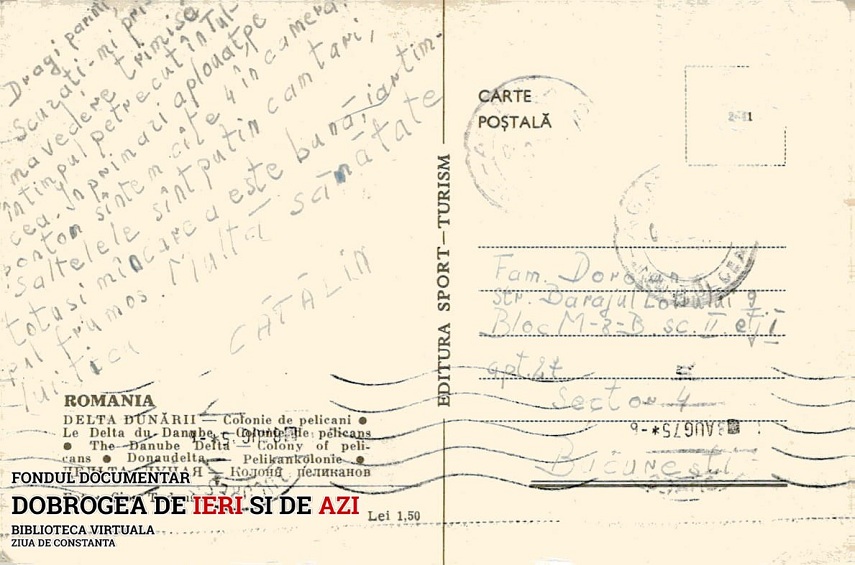 Dragi părinți,
Scuzați-mi pri-
ma vedere trimisă
întimpul petrecut în Tul-
cea. În prima zi a plouat, pe
ponton sîntem cîte 4 în cameră.
Saltelele sînt puțin cam tari,
totuși mîncarea este bună, iar tim-
pul frumos. Multă sănătate
CĂTĂLIN
ROMANIA
DELTA DUNĂRII — Colonie de pelicani ●
Le Delta du Danube — Colonie de pélicans
● The Danube Delta — Colony of peli-
cans ● Donaudelta — Pelikankolonie ●
ДЕЛЬТА ДУНАЯ — Колония пеликанов
Lei 1,50
EDITURA SPORT–TURISM
CARTE
POȘTALĂ
Fam.
Str. Barajul Lotrului 9
Bloc M-2-B sc. II etj
apt. 27
Sector 4
București
AUG75
FONDUL DOCUMENTAR
DOBROGEA DE IERI SI DE AZI
BIBLIOTECA VIRTUALA
ZIUA DE CONSTANTA